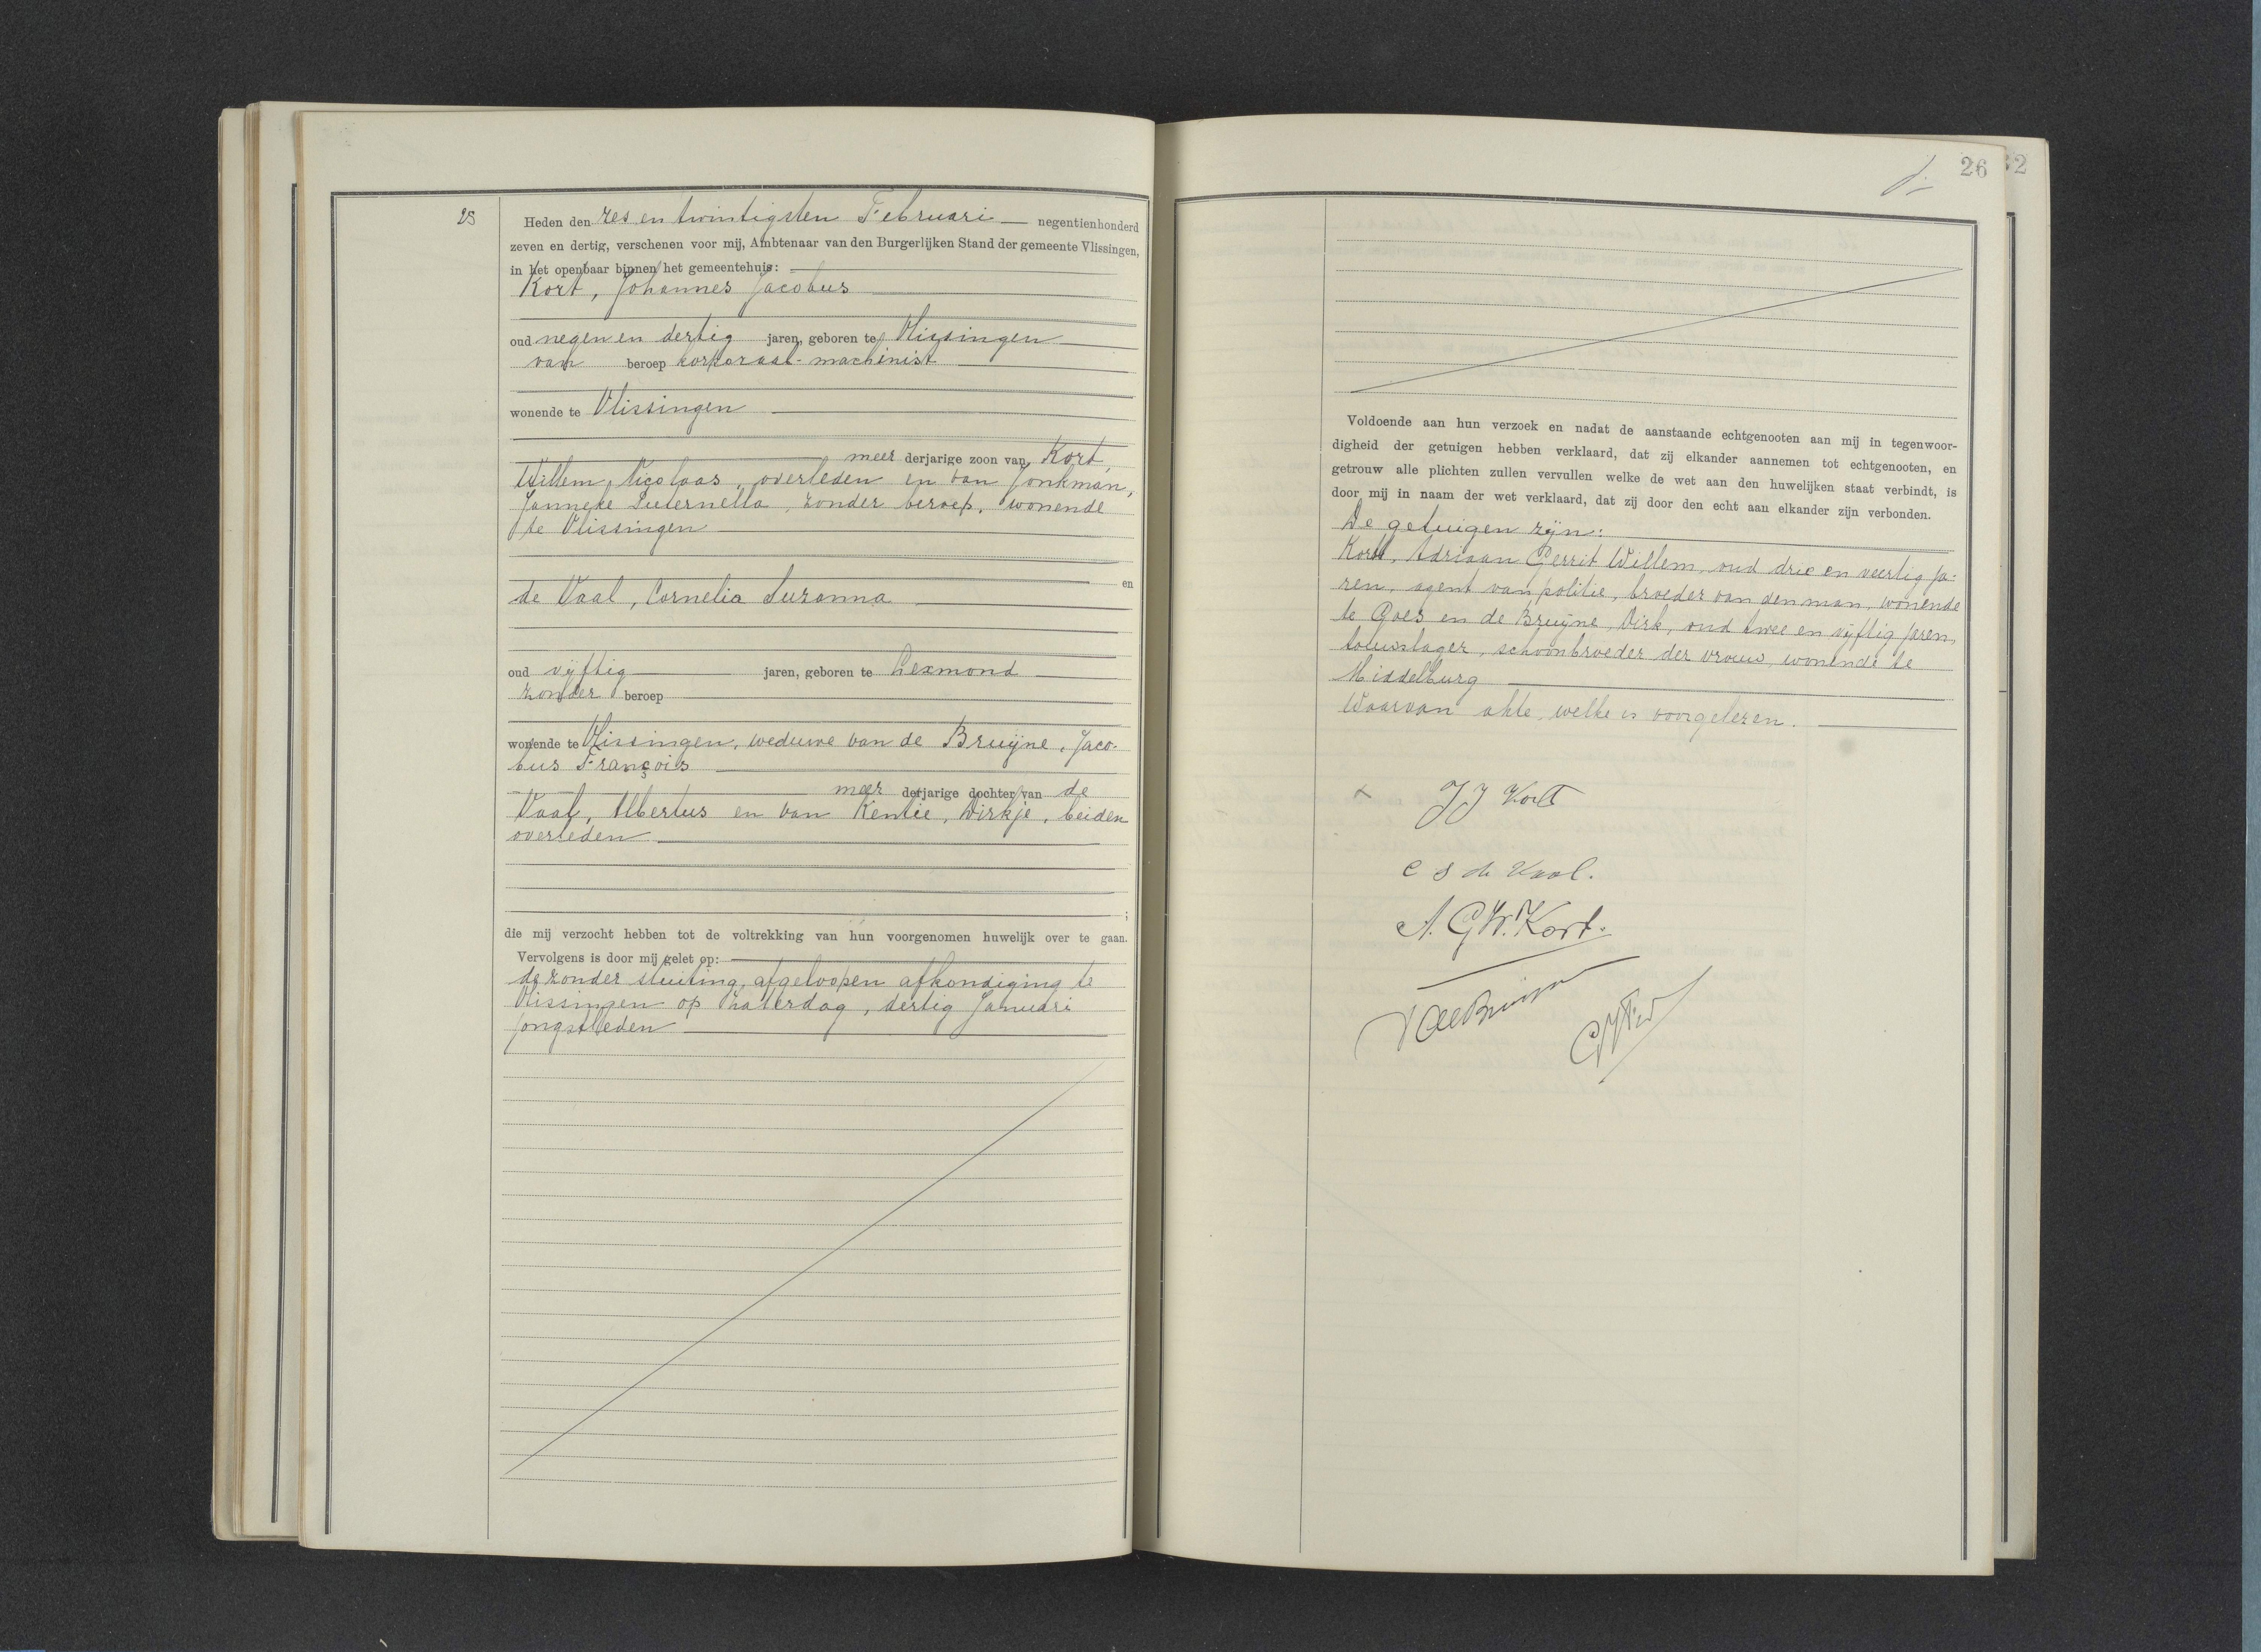 25
Heden den zes en twintigsten Februari negentienhonderd
zeven en dertig, verschenen voor mij, Ambtenaar van den Burgerlijken Stand der gemeente Vlissingen,
in het openbaar binnen het gemeentehuis:
Kort, Johannes Jacobus
oud negen en dertig jaren, geboren te Vlissingen
van beroep korporaal-machinist
wonende te Vlissingen
meerderjarige zoon van Kort,
Willem Nicolaas, overleden en van Jonkman,
Janneke Pieternella, zonder beroep, wonende
te Vlissingen
en
de Vaal, Cornelia Suzanna
oud vijftig jaren, geboren te Lexmond
zonder beroep
wonende te Vlissingen, weduwe van de Bruijne, Jaco-
bus François
meerderjarige dochter van de
Vaal, Albertus en van Kentie, Dirkje, beiden
overleden
;
die mij verzocht hebben tot de voltrekking van hun voorgenomen huwelijk over te gaan.
Vervolgens is door mij gelet op:
de zonder stuiting afgeloopen afkondiging te
Vlissingen op zaterdag, dertig Januari
jongstleden
26
32
Voldoende aan hun verzoek en nadat de aanstaande echtgenooten aan mij in tegenwoor-
digheid der getuigen hebben verklaard, dat zij elkander aannemen tot echtgenooten, en
getrouw alle plichten zullen vervullen welke de wet aan den huwelijken staat verbindt, is
door mij in naam der wet verklaard, dat zij door den echt aan elkander zijn verbonden.
De getuigen zijn:
Kort, Adriaan Gerrit Willem, oud drie en veertig ja-
ren, agent van politie, broeder van den man, wonende
te Goes en de Bruijne, Dirk, oud twee en vijftig jaren,
touwslager, schoonbroeder der vrouw, wonende te
Middelburg
Waarvan akte, welke is voorgelezen.
x JJ Kort
C S de Vaal.
A. G.W. Kort.
D de Bruijne